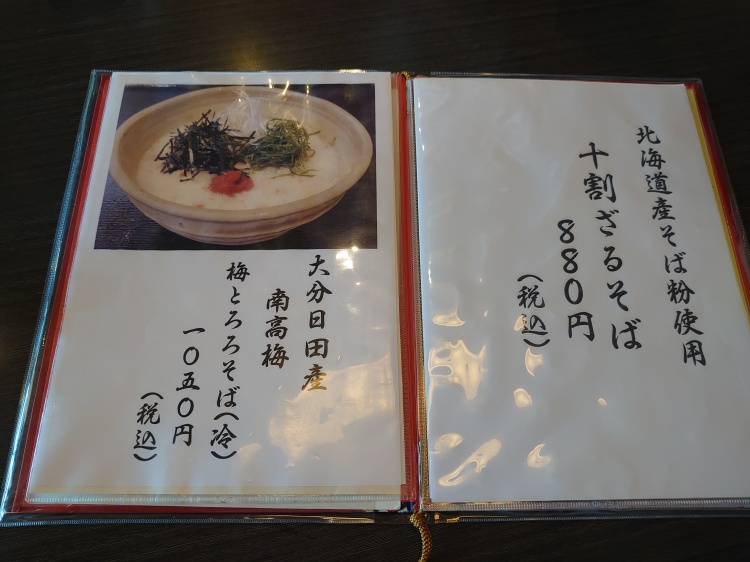 北海道産そば粉使用
十割ざるそば
880円
(税込)
大分日田産
南高梅
梅とろろそば(冷)
一〇五〇円
(税込)